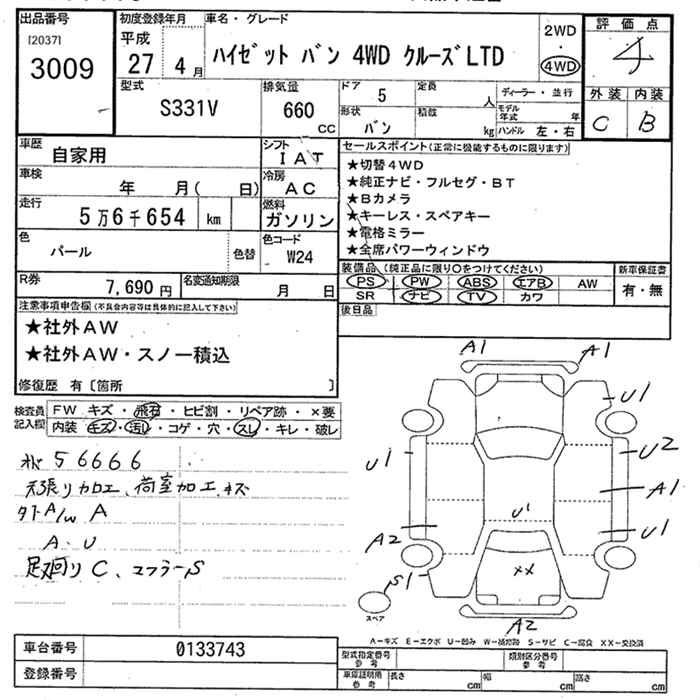 出品番号
[2037]
3009
初度登録年月
平成
27 4月
車名・グレード
ハイゼット バン 4WD クルーズLTD
2WD
・
4WD
評価点
4
外装 内装
C B
型式
S331V
排気量
660
cc
ドア 5
形状
バン
定員
人
積載
kg
ディーラー・並行
モデル年式 年
ハンドル 左・右
車歴
自家用
シフト
IAT
車検
年 月( 日)
冷房
AC
走行
5万6千654 km
燃料
ガソリン
色
パール
色替
色コード
W24
R券
7,690円
名変通知期限
月 日
セールスポイント(正常に機能するものに限ります)
★切替4WD
★純正ナビ・フルセグ・BT
★Bカメラ
★キーレス・スペアキー
★電格ミラー
★全席パワーウィンドウ
装備品 (純正品に限り○をつけてください)
PS PW ABS エアB AW
SR ナビ TV カワ
新車保証書
有・無
後日品
注意事項申告欄(不具合内容等は具体的に記入して下さい)
★社外AW
★社外AW・スノー積込
修復歴 有〔箇所 〕
検査員記入欄
FW キズ・飛石・ヒビ割・リペア跡・×要
内装 キズ・汚レ・コゲ・穴・スレ・キレ・破レ
56666
天張り加工、荷室加工、キズ
外A/W A
A・U
足廻りC、マフラーS
A1 A1
U1
U1 U2
A1
U1
U1
A2
S1
××
A2
スペア
A-キズ E-エクボ U-凹み W-補修跡 S-サビ C-腐食 XX-交換済
車台番号 0133743
登録番号
型式指定番号
参考
類別区分番号
参考
車庫証明用
参考
長さ cm 幅 cm 高さ cm